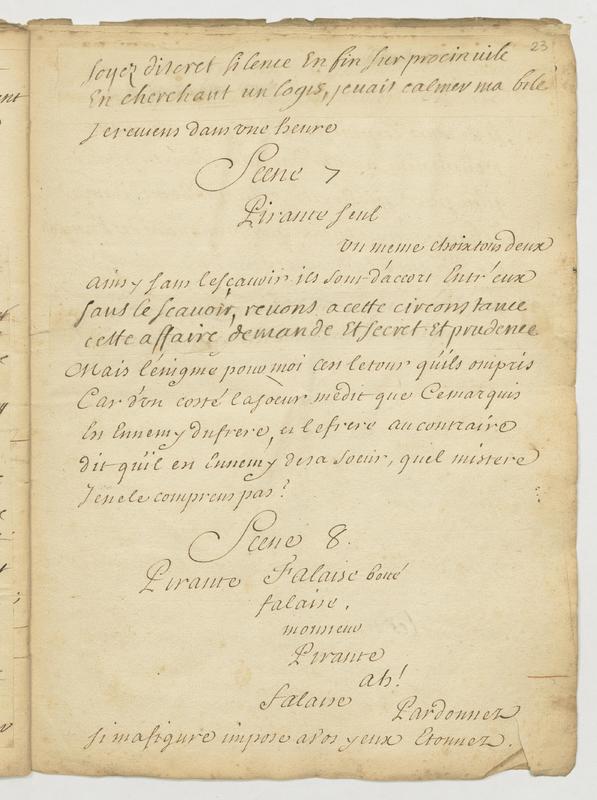 23
soyez discret silence Enfin sur procinuile
En cherchant un logis, je vais calmer ma bile
Jereuiens dans vne heure
Scene 7
Pirante seul
vn meme choix tous deux
ainsy sans lescauoir ils sont d'accort Entr'eux
sans le scauoir, reuons a cette circonstance
cette affaire demande Et secret Et prudence
Mais l'enigme pour moi cest le tour qu'ils ont pris
Car d'vn costé la soeur me dit que Ce marquis
En Ennemy du frere, et le frere au contraire
dit qu'il en Ennemy de sa soeur, quel mistere
Jenele comprens pas?
Scene 8.
Pirante Falaise botté
falaise.
monsieur
Pirante
ah!
falaise
Pardonnez
si ma figure impose a vos yeux Etonnez.